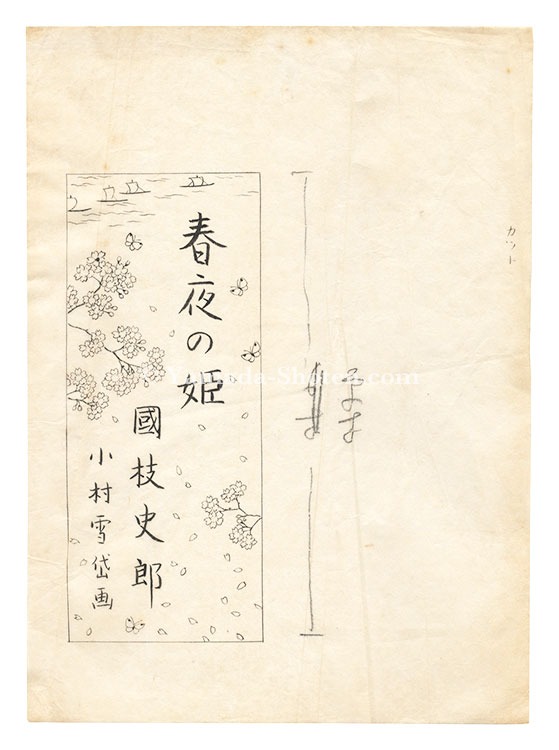 カット
春夜の姫
國枝史郎
小村雪岱画
Yamada-Shoten.com